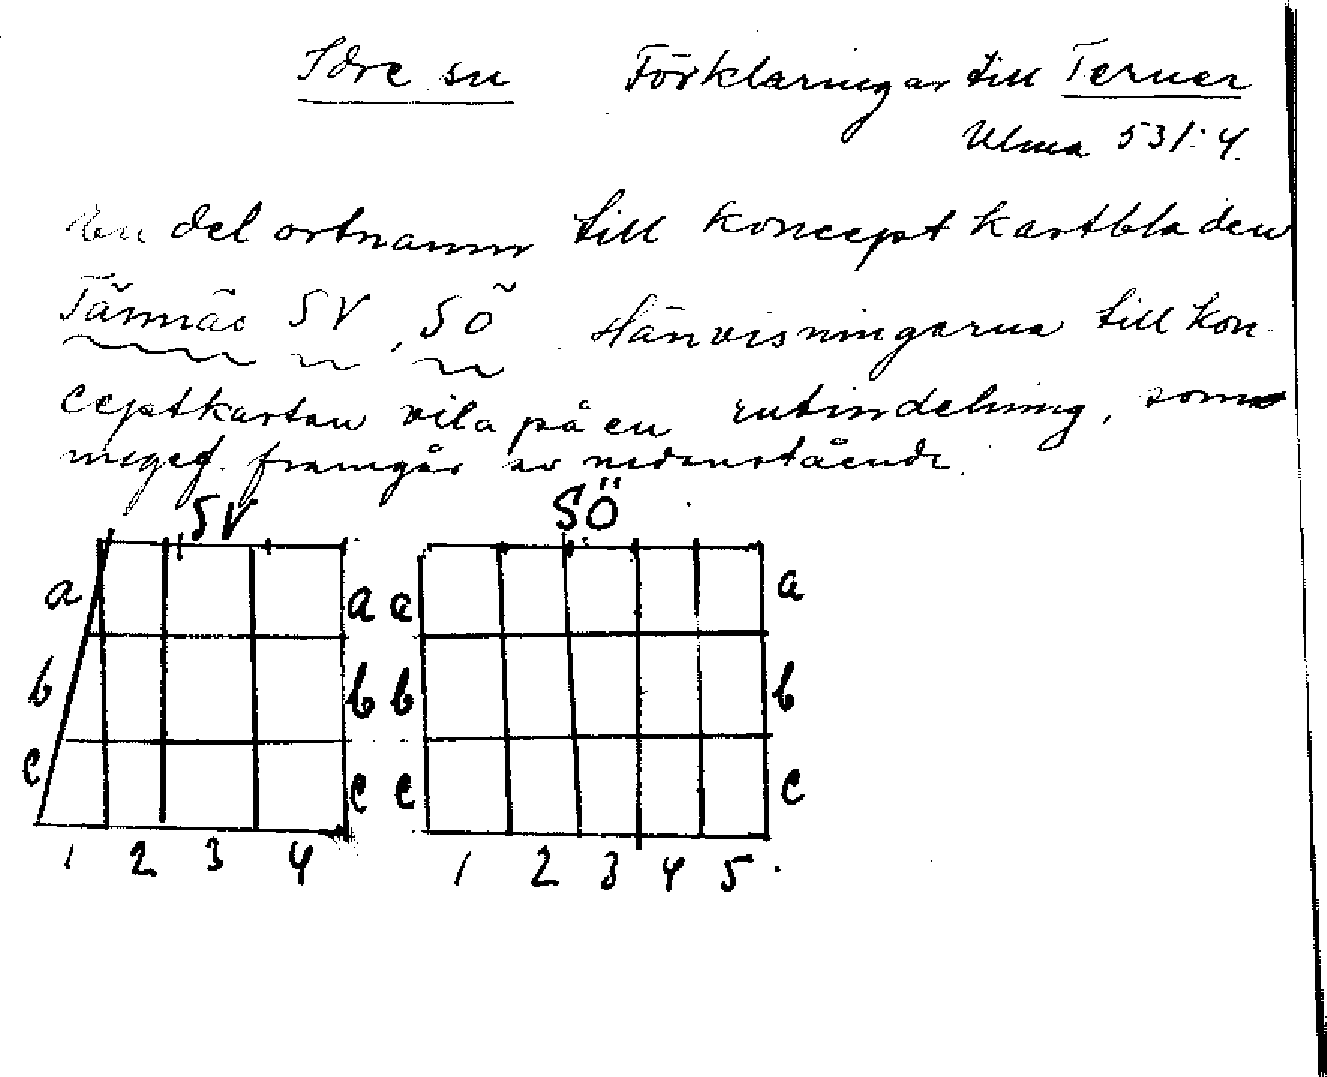 Idre sn Förklaringar till Terner
Ulma 531:4.
En del ortnamn till konceptkartbladen
Tännäs SV, SÖ. Hänvisningarna till kon-
ceptkartan vila på en rutindelning, som
framgår av nedanstående.
SV SÖ
a a a a
b b b b
c c c c
1 2 3 4 1 2 3 4 5